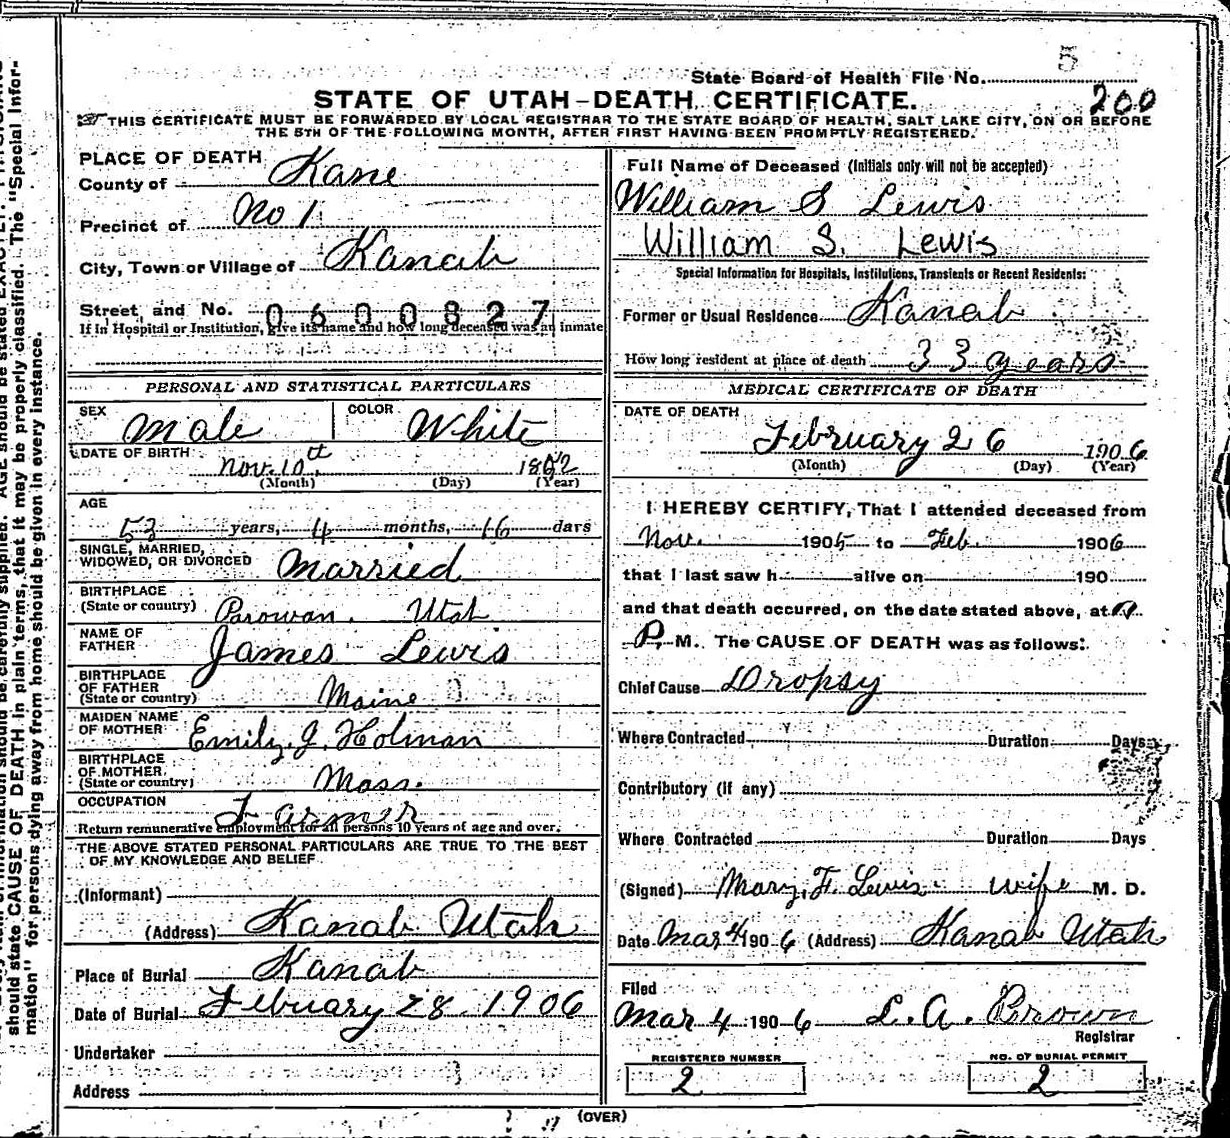 5
State Board of Health File No.
200
STATE OF UTAH-DEATH CERTIFICATE.
THIS CERTIFICATE MUST BE FORWARDED BY LOCAL REGISTRAR TO THE STATE BOARD OF HEALTH, SALT LAKE CITY, ON OR BEFORE
THE 5TH OF THE FOLLOWING MONTH, AFTER FIRST HAVING BEEN PROMPTLY REGISTERED.
PLACE OF DEATH
County of Kane
Precinct of No 1
City, Town or Village of Kanab
Street and No. 0600827
If in Hospital or Institution, give its name and how long deceased was an inmate
PERSONAL AND STATISTICAL PARTICULARS
SEX Male COLOR White
DATE OF BIRTH Nov. 10th 1852
(Month) (Day) (Year)
AGE
53 years, 4 months, 16 days
SINGLE, MARRIED,
WIDOWED, OR DIVORCED Married
BIRTHPLACE
(State or country) Parowan. Utah
NAME OF
FATHER James Lewis
BIRTHPLACE
OF FATHER
(State or country) Maine
MAIDEN NAME
OF MOTHER Emily. J. Holman
BIRTHPLACE
OF MOTHER
(State or country) Mass.
OCCUPATION Farmer
Return remunerative employment for all persons 10 years of age and over.
THE ABOVE STATED PERSONAL PARTICULARS ARE TRUE TO THE BEST
OF MY KNOWLEDGE AND BELIEF
(Informant)
(Address) Kanab Utah
Place of Burial Kanab
Date of Burial February 28. 1906
Undertaker
Address
Full Name of Deceased (Initials only will not be accepted)
William S Lewis
William S. Lewis
Special Information for Hospitals, Institutions, Transients or Recent Residents:
Former or Usual Residence Kanab
How long resident at place of death 33 years
MEDICAL CERTIFICATE OF DEATH
DATE OF DEATH
February 26 1906
(Month) (Day) (Year)
I HEREBY CERTIFY, That I attended deceased from
Nov. 1905 to Feb. 1906
that I last saw h alive on 190
and that death occurred, on the date stated above, at
P. M. The CAUSE OF DEATH was as follows:
Chief Cause Dropsy
Where Contracted Duration Days
Contributory (if any)
Where Contracted Duration Days
(Signed) Mary. F. Lewis. wife M. D.
Date Mar 4 1906 (Address) Kanab Utah
Filed
Mar 4 1906 L. A. Brown
Registrar
REGISTERED NUMBER
2
NO. OF BURIAL PERMIT
2
(OVER)
should state CAUSE OF DEATH in plain terms, that it may be properly classified. The "Special Infor-
mation" for persons dying away from home should be given in every instance.